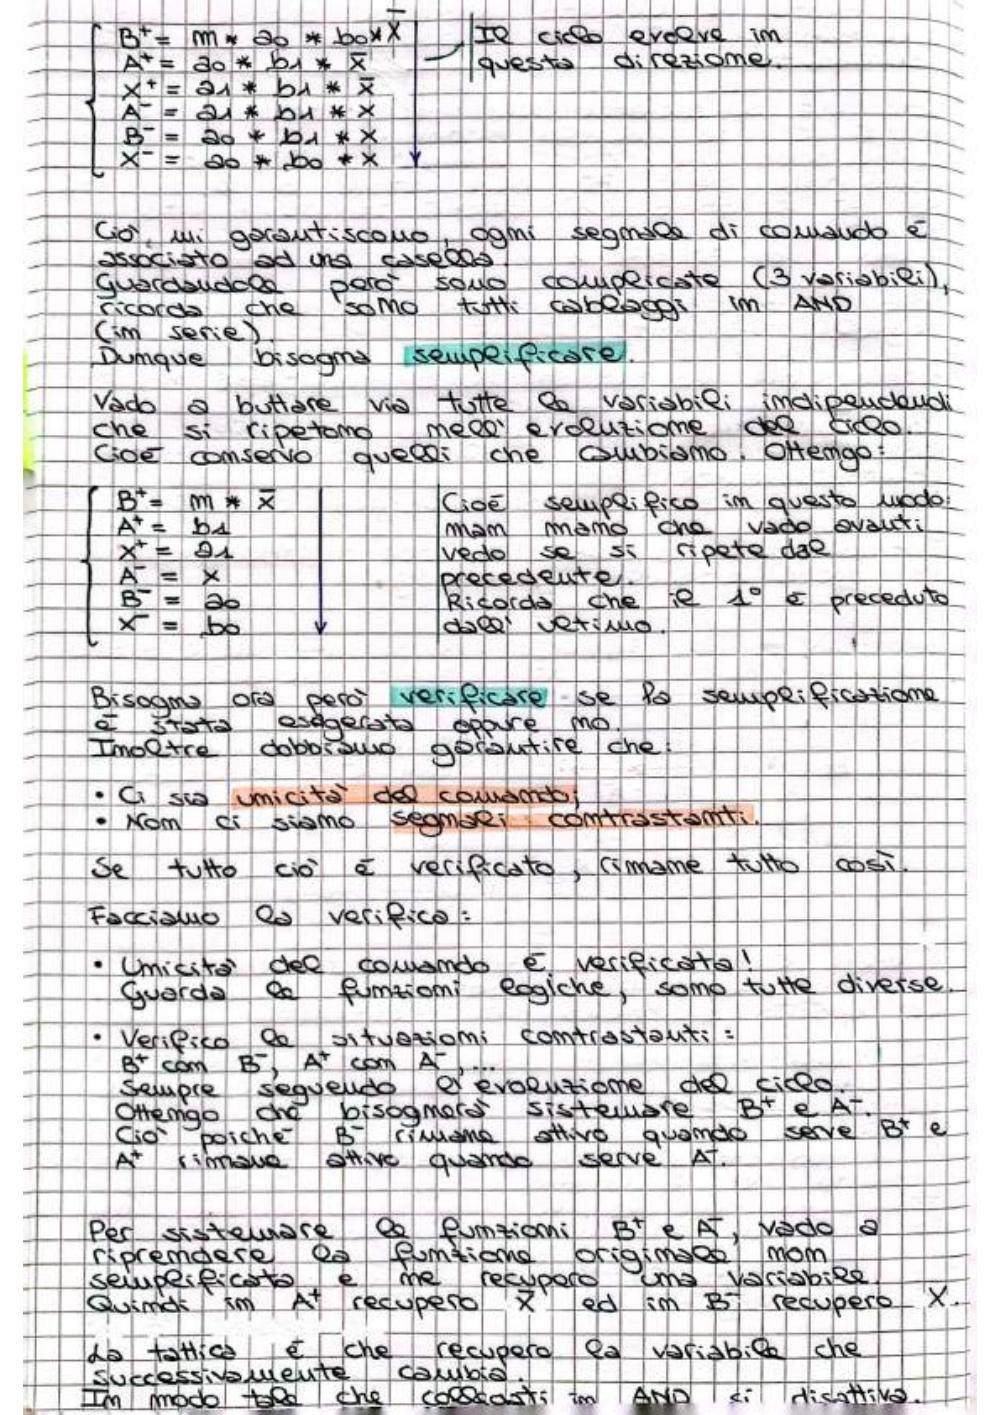 B⁺ = m * a0 * b0 * X̄
A⁺ = a0 * b1 * X̄
X⁺ = a1 * b1 * X̄
A⁻ = a1 * b1 * X
B⁻ = a0 * b1 * X
X⁻ = a0 * b0 * X
Il ciclo evolve in
questa direzione.
Ciò, mi garantiscono, ogni segnale di comando è
associato ad una casella.
Guardandole però sono complicate (3 variabili),
ricorda che sono tutti cablaggi in AND
(in serie).
Dunque bisogna semplificare.
Vado a buttare via tutte le variabili indipendendi
che si ripetono nell'evoluzione del ciclo.
Cioè conservo quelli che cambiano. Ottengo:
B⁺ = m * X̄
A⁺ = b1
X⁺ = a1
A⁻ = X
B⁻ = a0
X⁻ = b0
Cioè semplifico in questo modo:
man mano che vado avanti
vedo se si ripete dal
precedente.
Ricorda che il 1° è preceduto
dall'ultimo.
Bisogna ora però verificare se la semplificazione
è stata esagerata oppure no.
Inoltre dobbiamo garantire che:
• Ci sia unicità del comando;
• Non ci siano segnali contrastanti.
Se tutto ciò è verificato, rimane tutto così.
Facciamo la verifica:
• Unicità del comando è verificata!
Guarda le funzioni logiche, sono tutte diverse.
• Verifico le situazioni contrastanti:
B⁺ con B⁻, A⁺ con A⁻,...
Sempre seguendo l'evoluzione del ciclo.
Ottengo che bisognerà sistemare B⁺ e A⁻.
Ciò poiché B⁻ rimane attivo quando serve B⁺ e
A⁺ rimane attivo quando serve A⁻.
Per sistemare le funzioni B⁺ e A⁻, vado a
riprendere la funzione originale non
semplificata e ne recupero una variabile.
Quindi in A⁺ recupero X̄ ed in B⁻ recupero X.
La tattica è che recupero la variabile che
successivamente cambia.
In modo tale che collegati in AND si disattiva.